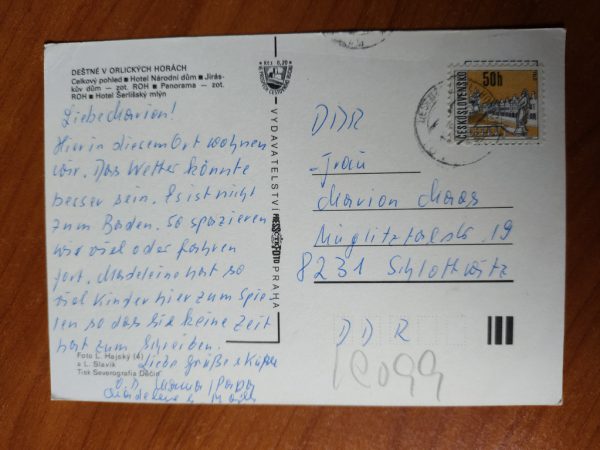 DEŠTNÉ V ORLICKÝCH HORÁCH
Celkový pohled ■ Hotel Národní dům ■ Jirás-
kův dům — zot. ROH ■ Panorama — zot.
ROH ■ Hotel Šerlišský mlýn
Kčs 0,20
Liebe Marion!
Hier in diesem Ort wohnen
wir. Das Wetter könnte
besser sein. Es ist nicht
zum Baden. So spazieren
wir viel oder fahren
fort. Madeleine hat so
viel Kinder hier zum Spie-
len so das sie keine Zeit
hat zum Schreiben.
Liebe Grüße + Küsse
Mama / Papa
Madeleine
Foto L. Hajský (4)
a L. Slavík
Tisk Severografia Děčín
VYDAVATELSTVÍ
PRESSFOTO
PRAHA
50h
ČESKOSLOVENSKO
DDR
Frau
Marion Maas
Müglitztalstr. 19
8231 Schlottwitz
DDR